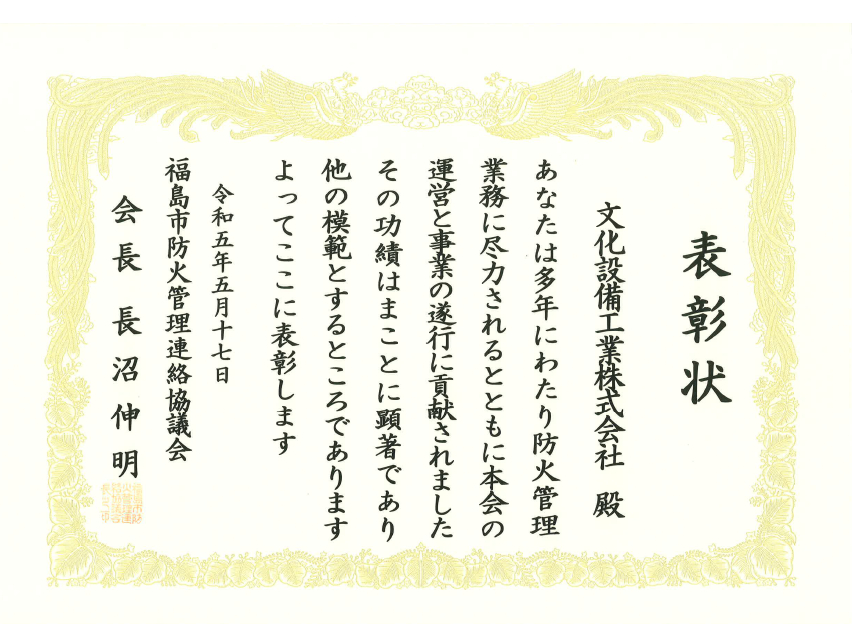 表彰状
文化設備工業株式会社 殿
あなたは多年にわたり防火管理
業務に尽力されるとともに本会の
運営と事業の遂行に貢献されました
その功績はまことに顕著であり
他の模範とするところであります
よってここに表彰します
令和五年五月十七日
福島市防火管理連絡協議会
会長 長沼伸明